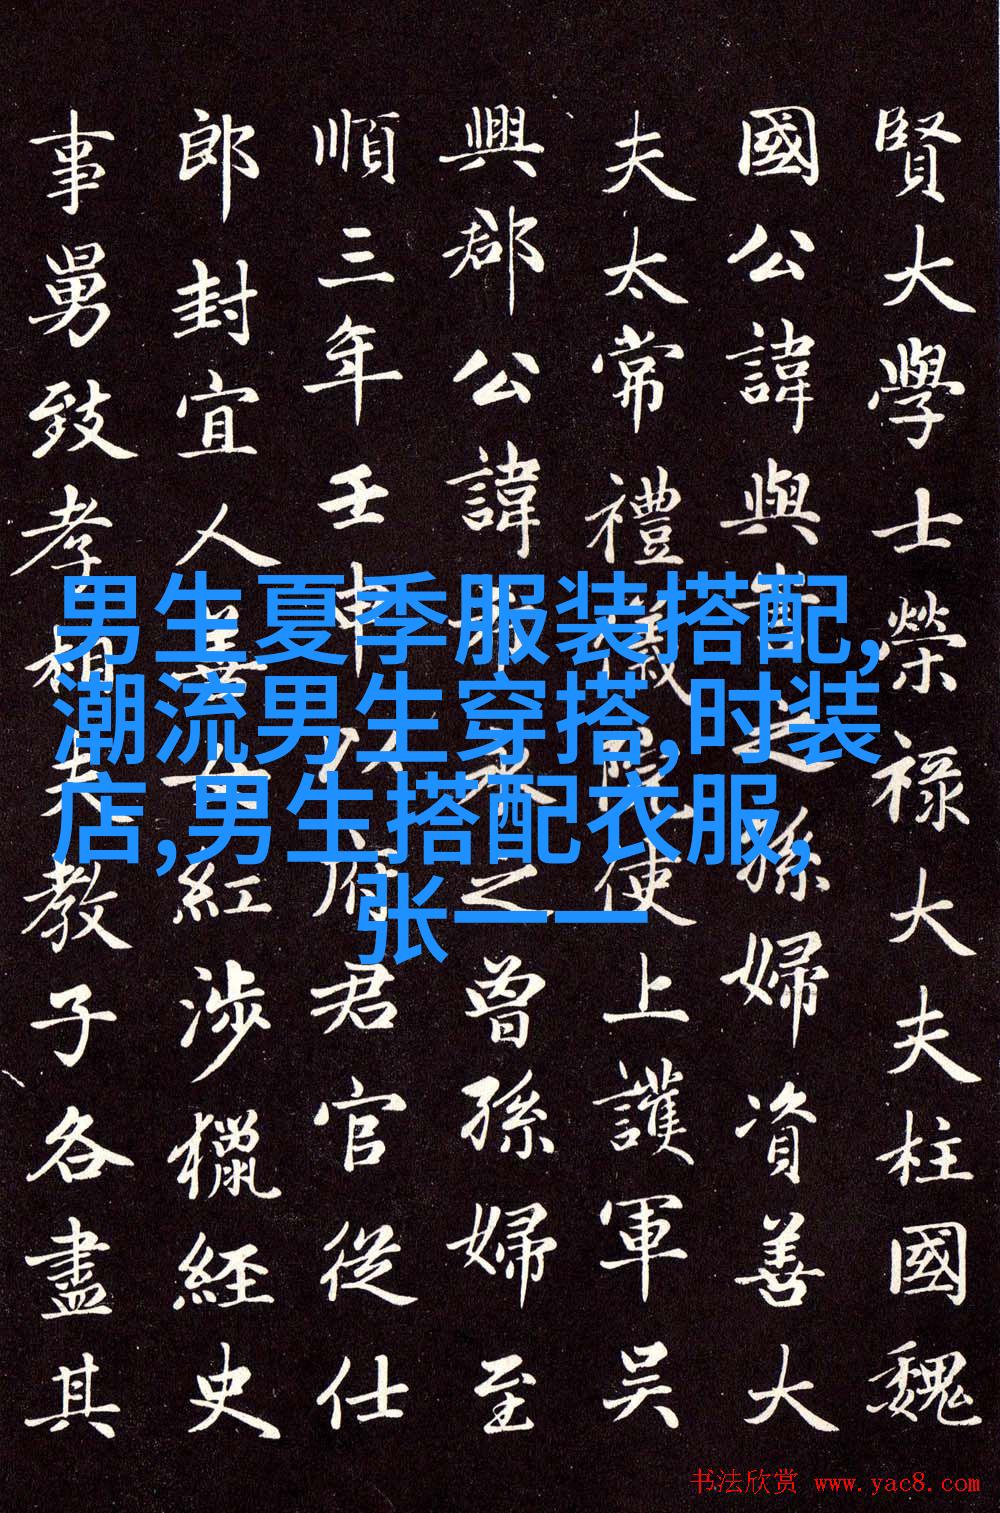 賢大學士榮禄大夫柱國魏
國公諱與之孫婦資善大
夫太常禮儀院使上護軍吳
興郡公諱希永之曾孫婦至
順三年壬申以府君官從仕
郎封宜人善女紅涉獵經史
事舅致孝相夫教子各盡其
男生夏季服装搭配,
潮流男生穿搭,时装
店,男生搭配衣服,
张一一
书法欣赏 www.yac8.com